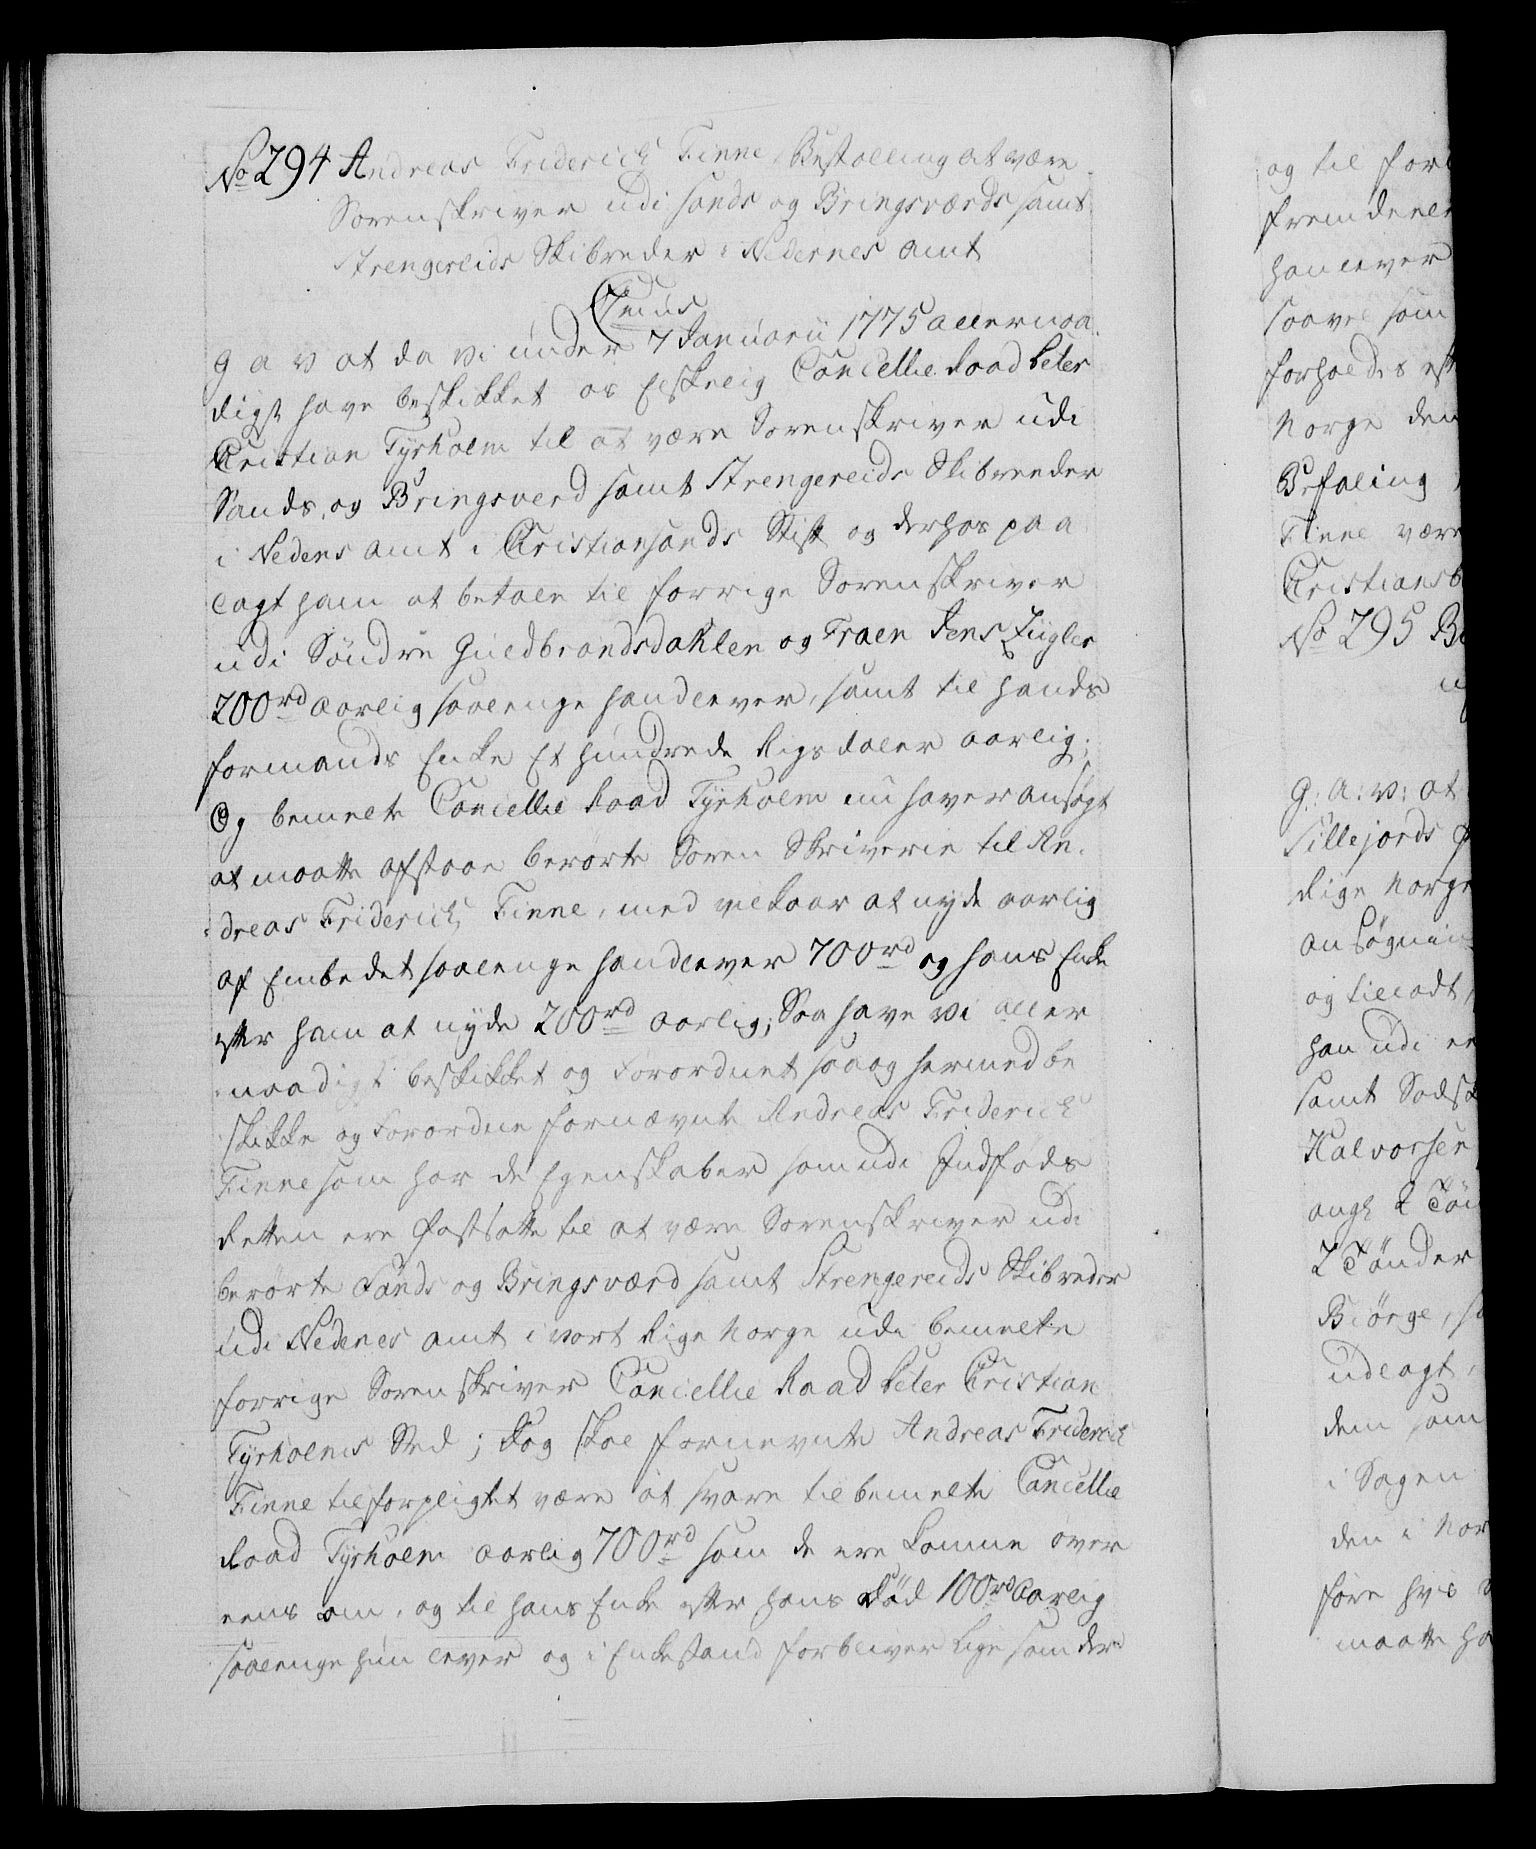 No 294 Andreas Friderich Finne Bestalling at være
Sorenskriver udi Sands og Bringsværds samt
Strengereids Skibreder i Nedernes amt
G a v at da vi under 7 Januarii 1775 allernaa-
digst have beskikket os Elskelig Cancellie Raad Peter
Christian Tyrholm til at være Sorenskriver udi
Sands, og Bringsverd samt Strengereids Skibreeder
i Nedens amt i Christiansands Stift og derhos paa
lagt ham at betale til forrige Sorenskriver
udi Søndre Guldbrandsdahlen og Fraen Jens
200rd aarlig saalenge hand lever, samt til hands
formands Enke Et hundrede Rigsdaler aarlig;
Og bemelte Cancellie Raad Tyrholm nu haver ansøgt
at maatte afstaae berørte Soren Skriverie til An-
dreas Friderich Finne, med vilkaar at nyde aarlig
af Embedet saalenge hand lever 700rd og hans Enke
efter ham at nyde 200rd aarlig; Saa have vi aller
naadigst beskikket og Forordnet saa og hermed be
skikke og Forordne fornævnte Andreas Friderich
Finne som har de Egenskaber som udi Indføds
Retten ere fastsatte til at være Sorenskriver udi
berørte Sands og Bringsværd samt Strengereids Skibreder
udi Nedenes amt i vort Rige Norge udi bemelte
forrige Sorenskriver Cancellie Raad Peter Christian
Tyrholms Sted; dog skal fornevnte Andreas Friderich
Finne tilforpligtet være at svare til bemelte Cancellie
Raad Tyrholm aarlig 700rd som de ere komne over
eens om, og til hans Enke efter hans død 100rd aarlig
saalenge hun lever og i Enkestand forbliver lige som der
og til
hand lever
saavel som
forholdes
Norge den
Befaling
Finne være
No 295
G: A: V: at
Rige Norge
og tillodt,
han udi
samt
Halvorsen
2 Tønder
Biørge,
udlagt,
dem som
i Sagen
den i
føre hvis
maatte